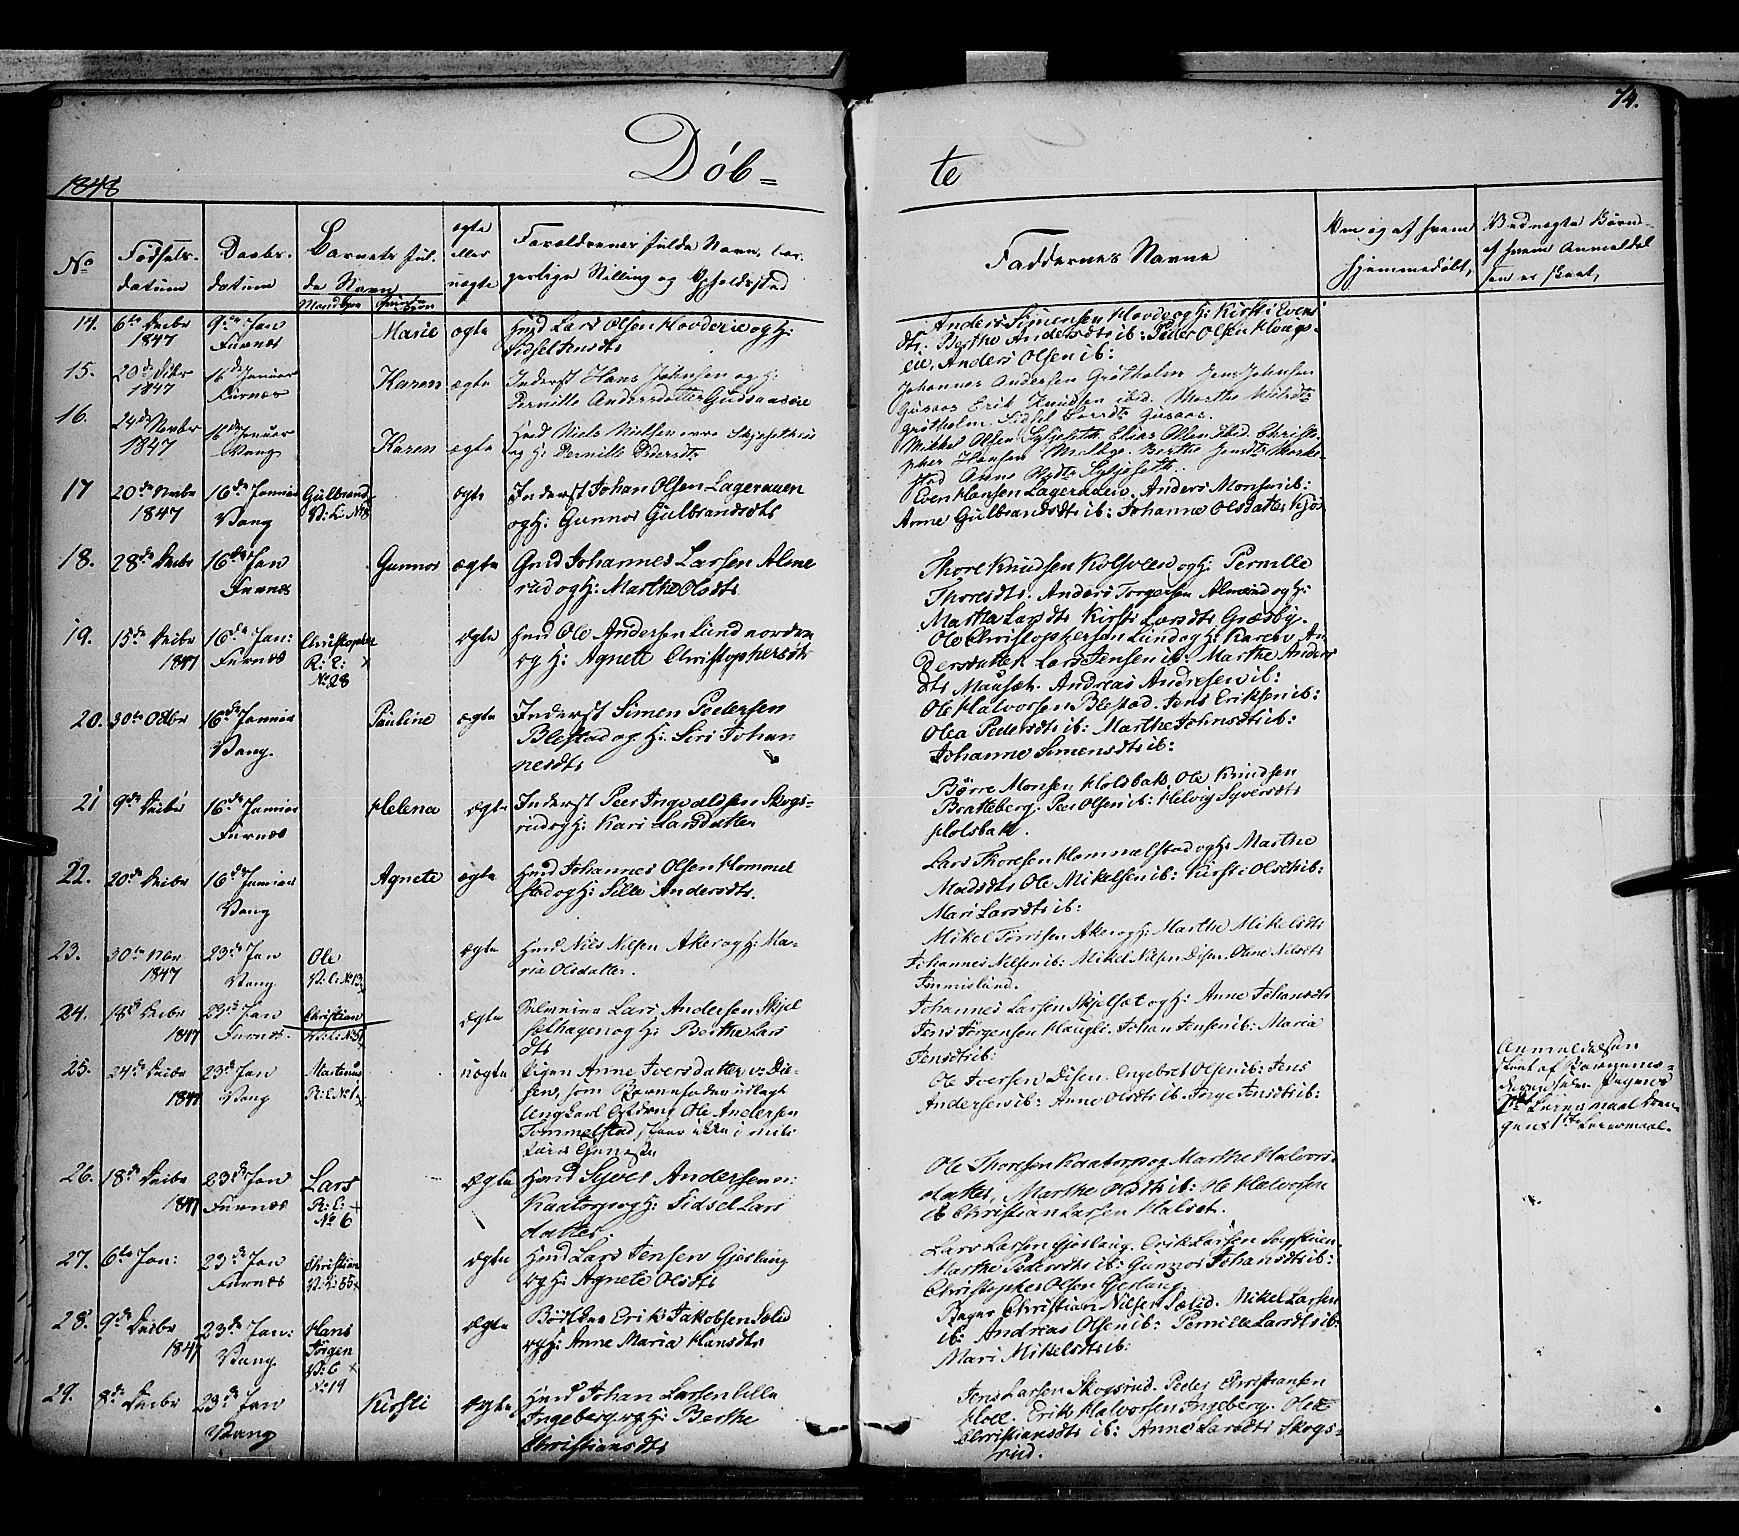 74.
1848
Døb=
te
No
Fødsels-
datum
Daabs-
datum
Barnets ful-
de Navn
Mandkjøn
Qvindekjøn
ægte
eller
uægte
Forældrenes fulde Navn, bor-
gerlige Stilling og Opholdssted
Faddernes Navne
Om og af hvem
hjemmedøbt,
Ved uægte Børn
af hvem Anmeldel
sen er skeet,
14.
6te Decbr
1847
9de Jan
Furnæs
Marie
ægte
Husd Lars Olsen Hovdeeie og H:
Sidsel Jensdtr
Anders Simensen Hovde og H: Kirsti Evens
dtr. Berthe Andersdtr ib: Peder Olsen Hougs-
eie, Anders Olsen ib:
15.
20de Decbr
1847
16de Januar
Furnæs
Karen
ægte
Inderst Hans Johnsen og H:
Pernille Andersdatter
Johannes Andersen Grøtholm Jens Johnsen
Gusaas Erik Knudsen ibid. Marthe
Grøtholm. Sidsel Larsdtr Gusaas.
16.
24de Novbr
1847
16de Januar
Vang
Karen
ægte
Husd Niels Nielsen
og H: Pernille Pedersdtr
Mikkel Olsen Elias Olsen Ibid. Christo-
pher Hansen Berthe Jensdtr
stad Anne Olsdtr
17
20de Decbr
1847
16de Januar
Vang
Gulbrand
V: L: No 8
ægte
Inderst Johan Olsen Lageraaen
og H: Gunnor Gulbrandsdtr
Even Hansen Lageraaen. Anders Monsen ib:
Anne Gulbrandsdtr ib: Johanne Olsdatter Kjos
18.
28de Decbr
16de Jan
Furnæs
Gunnor
ægte
Gmd Johannes Larsen Alme
rud og H: Marthe Olsdtr
Thore Knudsen Kolsveen og H: Pernille
Thoresdtr. Anders Torgersen Almerud og H:
Martha Larsdtr Kirsti Larsdtr Græsby.
19.
15de Decbr
1847
16de Jan:
Furnæs
Christopher
R: L: +
No 28
ægte
Husd Ole Andersen Lund nordre
og H: Agnete Christophersdtr
Ole Christophersen Lund og H: Karen An
dersdatter Lars Jensen ib: Marthe Anders
dtr Mausæt. Andreas Andresen ib:
20.
30te Octbr
16de Januar
Vang.
Pauline
ægte
Inderst Simen Pedersen
Blestad og H: Siri Johan
nesdtr
Ole Halvorsen Blestad. Jens Eriksen ib:
Olea Pedersdtr ib: Marthe Johnsdtr ib:
Johanne Simensdtr ib:
21
9de Decbr
16de Januar
Furnæs
Helena
ægte
Inderst Peer Ingvaldsen Skogs-
rud og H: Kari Larsdatter
Børre Monsen Holsbak Ole Knudsen
Bratteberg. Peer Olsen ib: Helvig Syversdtr
Holsbak.
22.
20de Decbr
16de Januar
Vang
Agnete
ægte
Husd Johannes Olsen Hommel
stad og H: Sille Andersdtr.
Lars Thoresen Hommelstad og H: Marthe
Madsdtr Ole Mikelsen ib: Kirsti Olsdtr ib:
Mari Larsdtr ib:
23.
30te Nbr
1847
23de Jan
Vang
Ole
V: L: No 13
ægte
Husd Nils Nilsen Aker og H: Ma-
ria Olsdatter.
Mikel Aker og H: Marthe Mikelsdtr
Johannes Nilsen ib: Mikel Nilsen Disen. Olene Nilsdtr
Fremmislund.
24.
18de Decbr
1847
23de Jan
Furnæs.
Christian
ægte
Lars Andersen Skjel
sethagen og H: Berthe Lars
dtr
Johannes Larsen Skjelsæt og H: Anne Johansdtr
Jens Jørgensen Haugli. Johan Jensen ib: Maria
Jensdtr ib:
25.
24de Decbr
1847
23de Jan
Vang
Martinus
R: L: No 1
uægte
Pigen Anne Iversdatter v: Di-
sen, som Barnefader udlagt
Ungkarl Ole Andersen
Tommelstad,
Ole Iversen Disen. Engebret Olsen ib: Jens
Andersen ib: Anne Olsdtr ib. Inge Jensdtr ib:
Anmeldelsen
skeet af Barnets
Pigens
1ste Leiermaal Dren-
gens 1ste Leiermaal.
26.
18de Decbr
1847
23de Jan
Furnæs
Lars
R: L: +
No 6
ægte
Husd Syver Andersen n:
Kaatorp og H: Sidsel Lars
datter
Ole Thoresen Kaatorp og Marthe Halvors-
datter, Marthe Olsdtr ib: Ole Halvorsen
ib Christian Larsen Halset.
27.
6te Jan:
23de Jan
Furnæs
Christian
V: L: 55
ægte
Husd Lars Jensen Gjerlaug
og H: Agnete Olsdtr
Lars Larsen Gjerlaug. Erik Larsen
Marthe Pedersdtr ib: Gunnor Johansdtr ib:
Christopher Olsen Gjerlaug
28.
9de Decbr
1847
23de Jan:
Vang
Hans
Jørgen
V: L +
No 19
ægte
Erik Jakobsen Sælid
og H: Anne Maria Hansdtr
Christian Nilsen Sælid. Mikel Larsen
ib: Andreas Olsen ib: Pernille Larsdtr ib:
Mari Mikelsdtr ib:
29.
8de Decbr
23de Jan
Vang
Kirsti
ægte
Husd Johan Larsen lille
Ingeberg og H: Berthe
Christiansdtr
Jens Larsen Skogsrud. Peder Christiansen
Hoel. Erik Halvorsen Ingeberg. Olea
Christiansdtr ib: Anne Larsdtr Skogs-
rud.